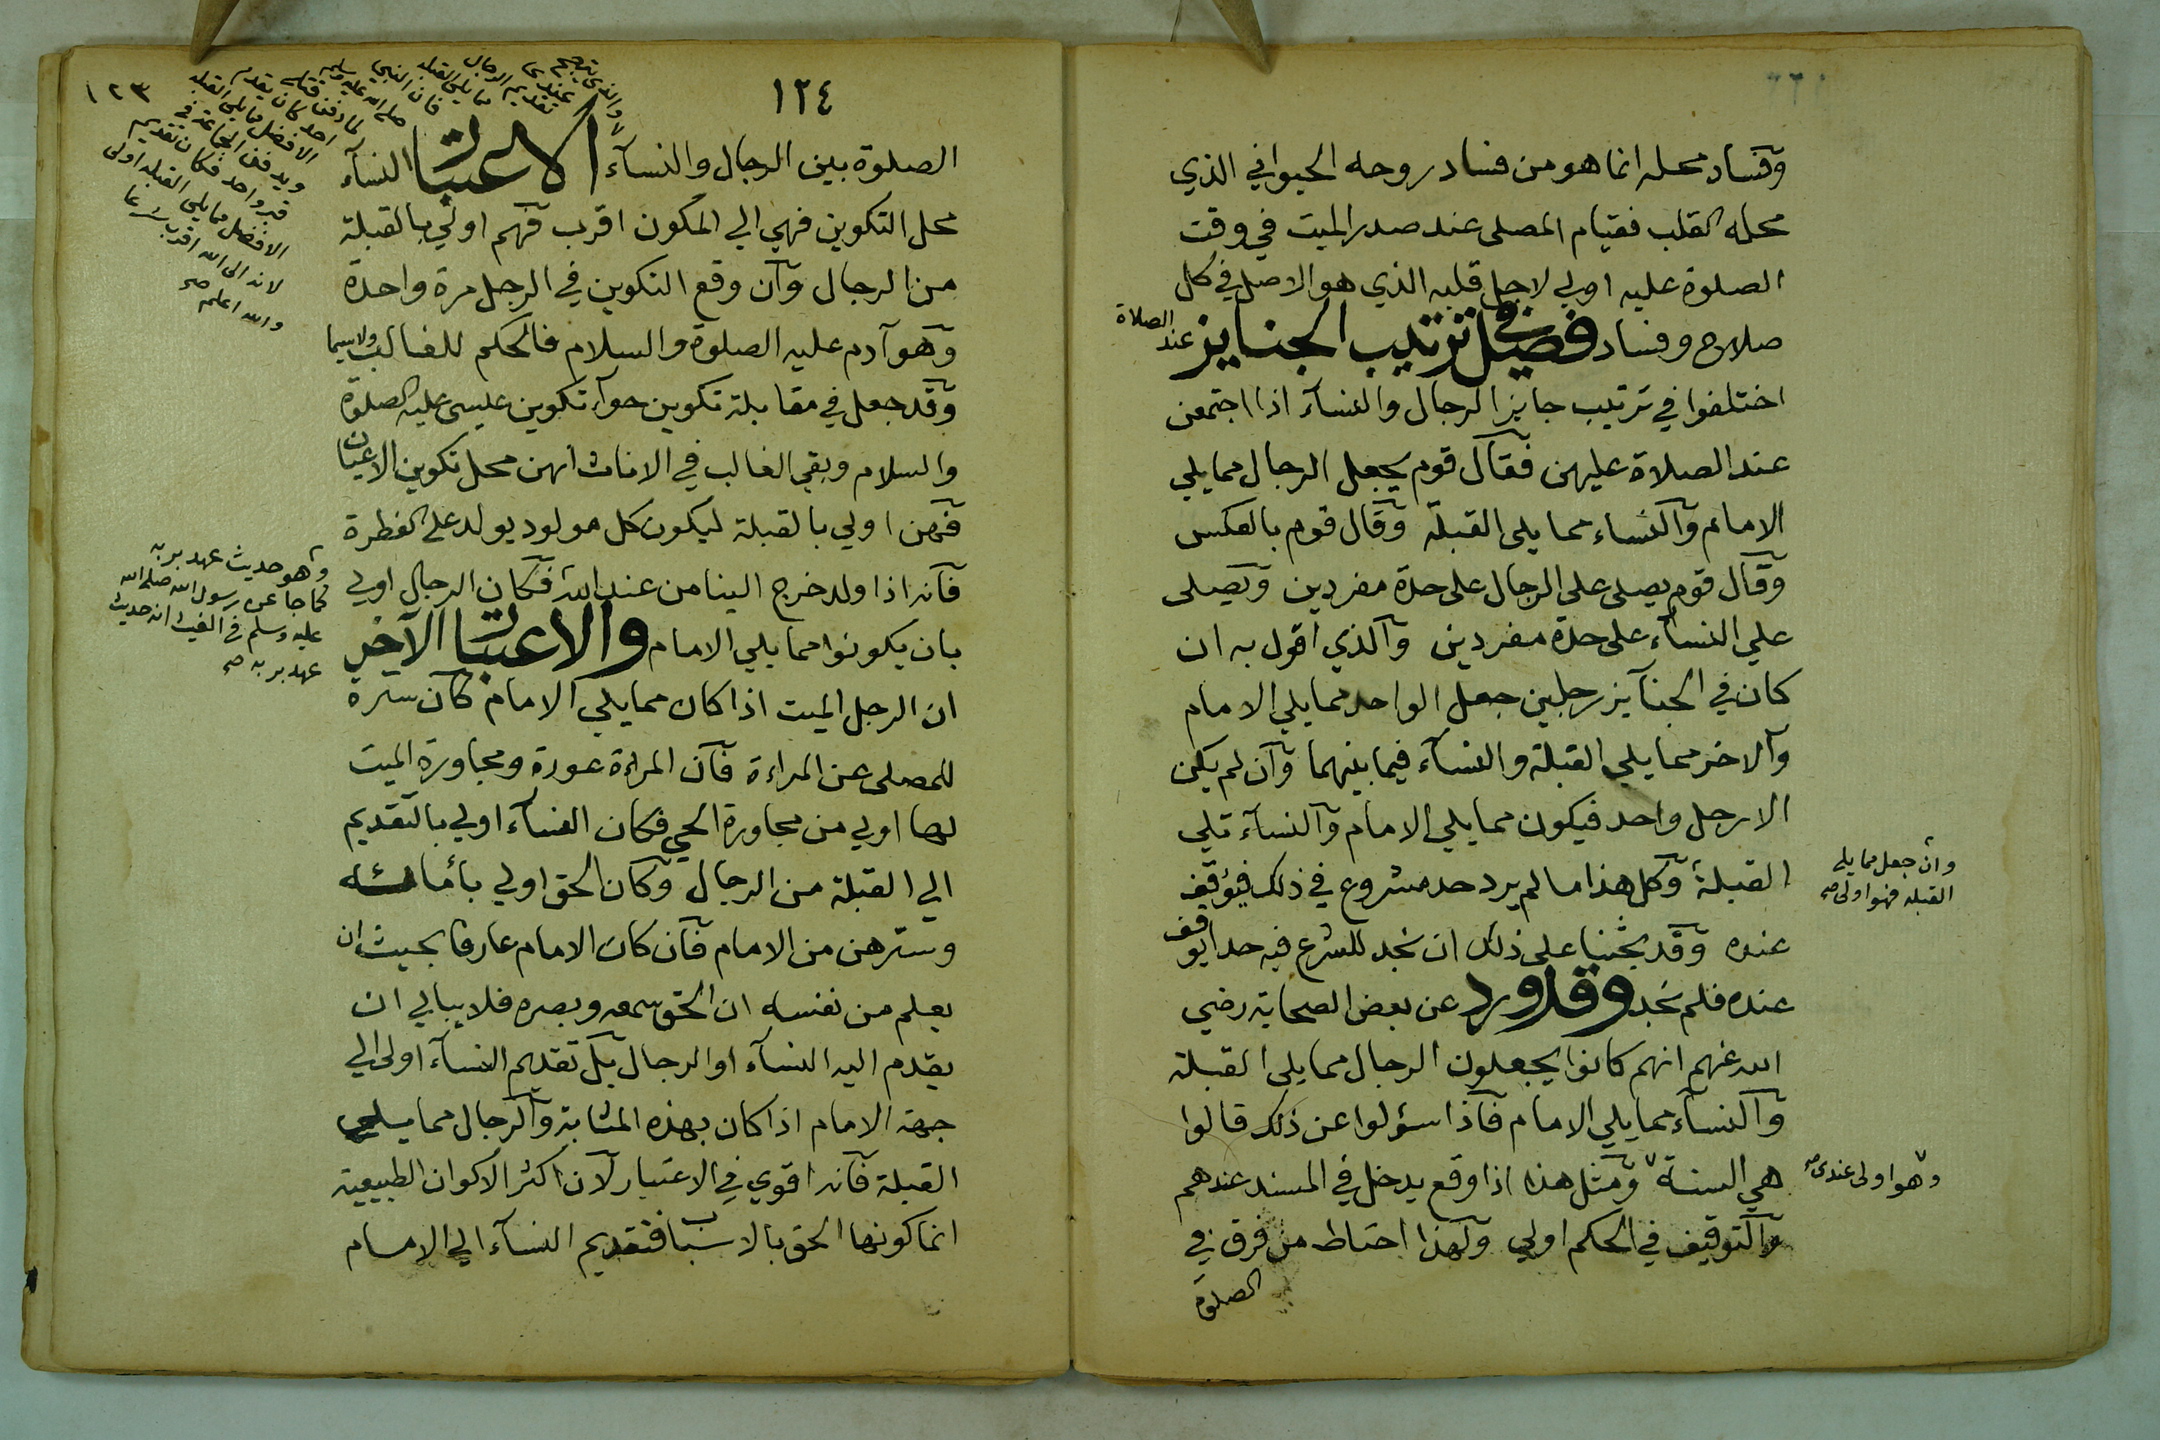 وفساد محله انما هو من فساد روحه الحيواني الذي
محله القلب فقيام المصلى عند صدر الميت في وقت
الصلوة عليه اولي لاجل قلبه الذي هو الاصل في كل
صلاح وفساد فصل في ترتيب الجنايز عند الصلاة
اختلفوا في ترتيب جنايز الرجال والنسآء اذا اجتمعن
عند الصلاة عليهن فقال قوم يجعل الرجال مما يلي
الامام والنساء مما يلى القبلة وقال قوم بالعكس
وقال قوم يصلى على الرجال على حدة مفردين ويصلى
علي النسآء على حدة مفردين والذي اقول به ان
كان في الجنآيز رجلين جعل الواحد مما يلي الامام
والاخر مما يلي القبلة والنسآء فيما بينهما وان لم يكن
الا رجل واحد فيكون مما يلي الامام والنسآء تلي
القبلة وكل هذا ما لم يرد حد مشروع في ذلك فيوقف
عنده وقد بحثنا على ذلك ان نجد للشرع فيه حدا يوقف
عنده فلم نجد وقد ورد عن بعض الصحابة رضي
الله عنهم انهم كانوا يجعلون الرجال مما يلى القبلة
والنسآء مما يلي الامام فاذا سؤلوا عن ذلك قالوا
هي السنة ومثل هذا اذا وقع يدخل في المسند عندهم
والتوقيف في الحكم اولي ولهذا احتاط من فرق في
الصلوة
وان جعل مما يلي
القبله فهو اولى صح
وهو اولى عندى صح
١٢٤
١٢٣
الصلوة بين الرجال والنسآء الاعتبار النسآء
محل التكوين فهي الي المكون اقرب فهم اولي بالقبلة
من الرجال وان وقع التكوين في الرجل مرة واحدة
وهو آدم عليه الصلوة والسلام فالحكم للغالب ولا سيما
وقد جعل في مقابلة تكوين حوآء تكوين عيسى عليه الصلوة
والسلام وبقي الغالب في الاناث انهن محل تكوين الاعيان
فهن اولي بالقبلة ليكون كل مولود يولد على الفطرة
فانه اذا ولد خرج الينا من عند الله فكان الرجال اولي
بان يكونوا مما يلي الامام والاعتبار الآخر
ان الرجل الميت اذا كان مما يلي الامام كان سترة
للمصلى عن المراءة فان المراءة عورة ومجاورة الميت
لها اولي من مجاورة الحي فكان النسآء اولي بالتقديم
الي القبلة من الرجال وكان الحق اولي بأمائه
وسترهن من الامام فان كان الامام عارفا بحيث ان
يعلم من نفسه ان الحق سمعه وبصره فلا يبالي ان
يقدم اليه النسآء او الرجال بل تقديم النسآء اولى الي
جهة الامام اذا كان بهذه المثابة والرجال مما يلي
القبلة فانه اقوي في الاعتبار لان اكثر الاكوان الطبيعية
انما كونها الحق بالاسباب فتقديم النسآء الي الامام
والذي يترجح
عندي
تقديم الرجال
مما يلي القبله
فان النبي
صلى الله عليه وسلم
لما دفن قتلى
احد كان يقدم
الافضل مما يلي القبله
ويدفن الجماعة في
قبر واحد فكان تقديم
الافضل مما يلي القبله اولى
لانه الى الله اقرب
والله اعلم صح
وهو حديث عهد بربه
كما جا عن رسول الله صلى الله
عليه وسلم في الغيث انه حديث
عهد بربه صح